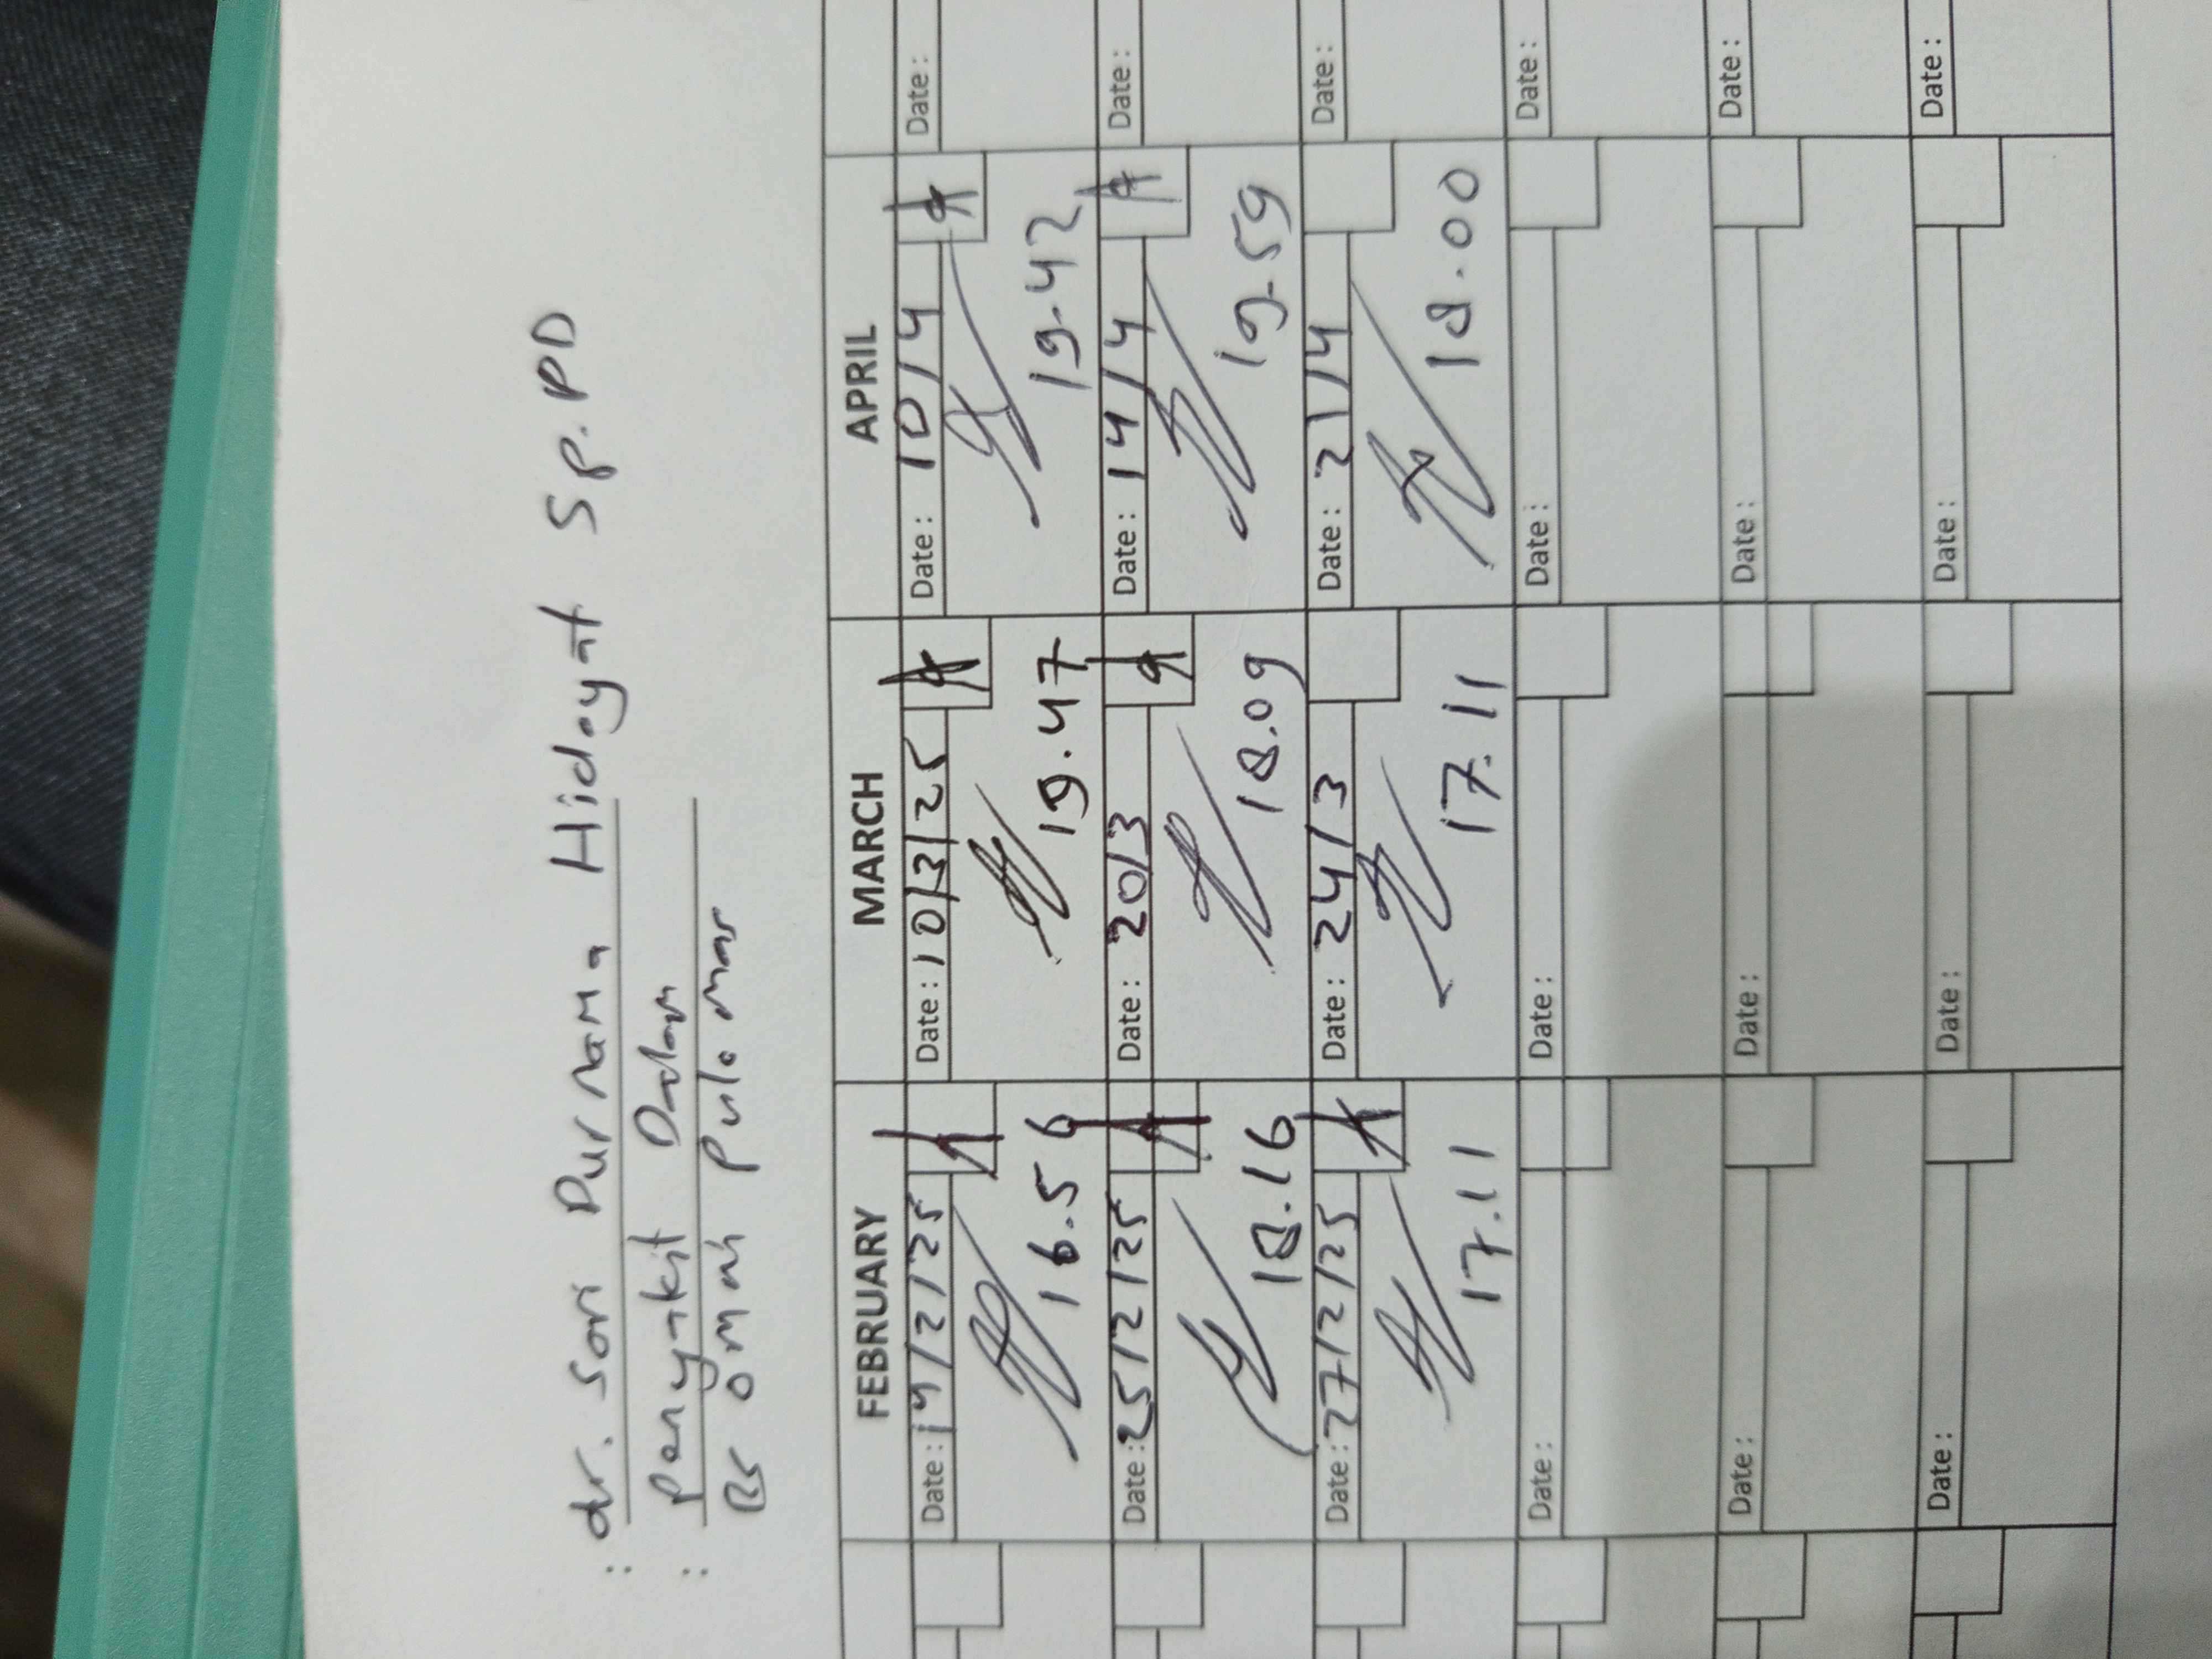 : dr. Sari Purnama Hidayat Sp.PD
: Penyakit Dalam
RS Omni Pulo Mas
FEBRUARY MARCH APRIL
Date : 14/2/25 Date : 10/3/25 Date : 10/4 Date :
16.56 19.47 19.42
Date : 25/2/25 Date : 20/3 Date : 14/4 Date :
18.16 18.09 19.59
Date : 27/2/25 Date : 24/3 Date : 21/4 Date :
17.11 17.11 18.00
Date : Date : Date : Date :
Date : Date : Date : Date :
Date : Date : Date : Date :